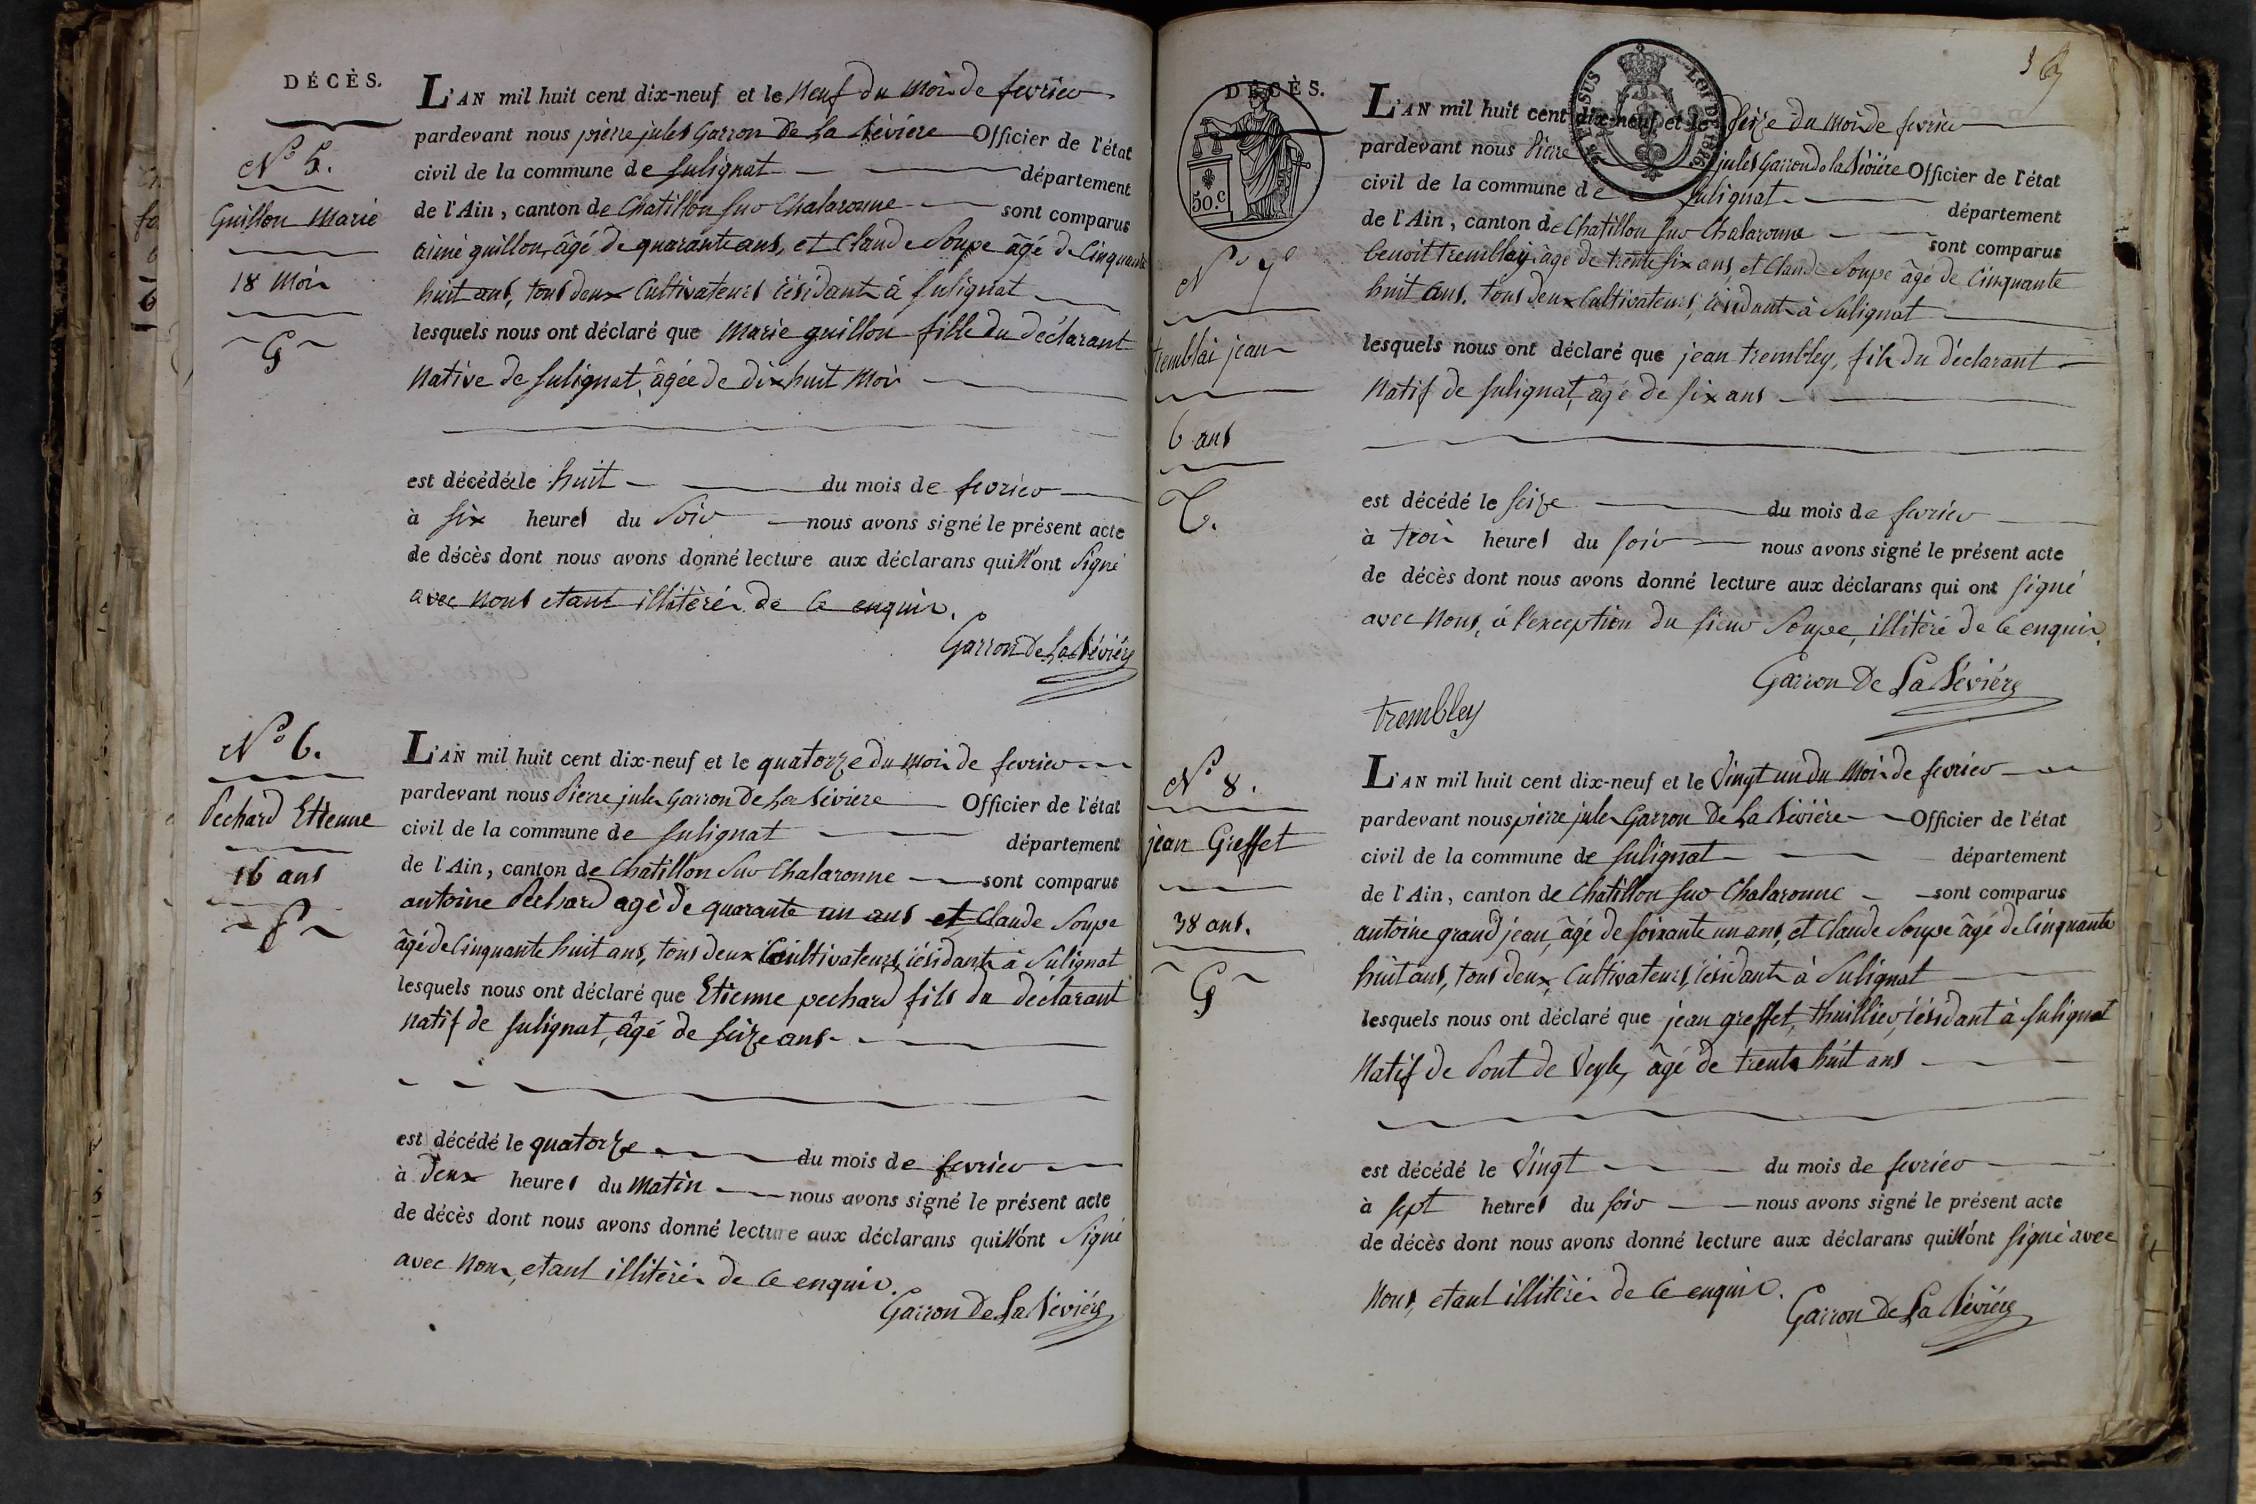 DÉCÈS.
N° 5.
Guillon Marie
18 Mois
G
L'AN mil huit cent dix-neuf et le Neuf du Mois de fevrier
pardevant nous pierre jules Garron De La Béviere Officier de l'état
civil de la commune de Sulignat département
de l'Ain, canton de Chatillon sur Chalaronne sont comparus
aimé guillon, âgé de quarante ans, et Claude Soupe âgé de Cinquante
huit ans, tous deux Cultivateurs résidants à Sulignat
lesquels nous ont déclaré que Marie guillon fille du déclarant
Native de Sulignat, âgée de dix huit Mois
est décédée le huit du mois de fevrier
à six heures du Soir nous avons signé le présent acte
de décès dont nous avons donné lecture aux déclarans qui N'ont Signé
avec Nous etant illitérés de ce enquis.
Garron De La Béviére
N° 6.
Pechard Etienne
16 ans
P
L'AN mil huit cent dix-neuf et le quatorze du Mois de fevrier
pardevant nous Pierre jules Garron De La Béviere Officier de l'état
civil de la commune de Sulignat département
de l'Ain, canton de Chatillon Sur Chalaronne sont comparus
antoine Pechard agé de quarante un ans et Claude Soupe
âgé de Cinquante huit ans, tous deux Cultivateurs, résidants à Sulignat
lesquels nous ont déclaré que Etienne pechard fils du déclarant
Natif de Sulignat, âgé de seize ans
est décédé le quatorze du mois de fevrier
à Deux heures du Matin nous avons signé le présent acte
de décès dont nous avons donné lecture aux déclarans qui N'ont Signé
avec Nous, etant illitérés de ce enquis.
Garron De La Béviére
36
DÉCÈS.
50.C
EN SUS
LOI DE 1816
N° 7
Tremblai jean
6 ans
T.
L'AN mil huit cent dix-neuf et le Seize du Mois de fevrier
pardevant nous Pierre jules Garron de la Béviére Officier de l'état
civil de la commune de Sulignat département
de l'Ain, canton de Chatillon sur Chalaronne sont comparus
benoit trembley, âgé de trente six ans, et Claude Soupe âgé de Cinquante
huit ans. tous deux Cultivateurs, résidants à Sulignat
lesquels nous ont déclaré que jean trembley, fils du déclarant
Natif de Sulignat, âgé de six ans
est décédé le seize du mois de fevrier
à trois heures du soir nous avons signé le présent acte
de décès dont nous avons donné lecture aux déclarans qui ont signé
avec Nous, à l'exception du sieur Soupe, illitéré de ce enquis.
Garron De La Béviére
trembley
N° 8.
jean Greffet
38 ans.
G
L'AN mil huit cent dix-neuf et le Vingt un du Mois de fevrier
pardevant nous pierre jules Garron De La Béviére Officier de l'état
civil de la commune de Sulignat département
de l'Ain, canton de Chatillon sur Chalaronne sont comparus
antoine grand jean, âgé de soixante un ans, et Claude Soupe âgé de Cinquante
huit ans, tous deux Cultivateurs, résidants à Sulignat
lesquels nous ont déclaré que jean greffet, thuillier, résidant à Sulignat
Natif de Pont de Veyle, âgé de trente huit ans
est décédé le Vingt du mois de fevrier
à sept heures du soir nous avons signé le présent acte
de décès dont nous avons donné lecture aux déclarans qui N'ont signé avec
Nous, etant illitérés de ce enquis.
Garron De La Béviére